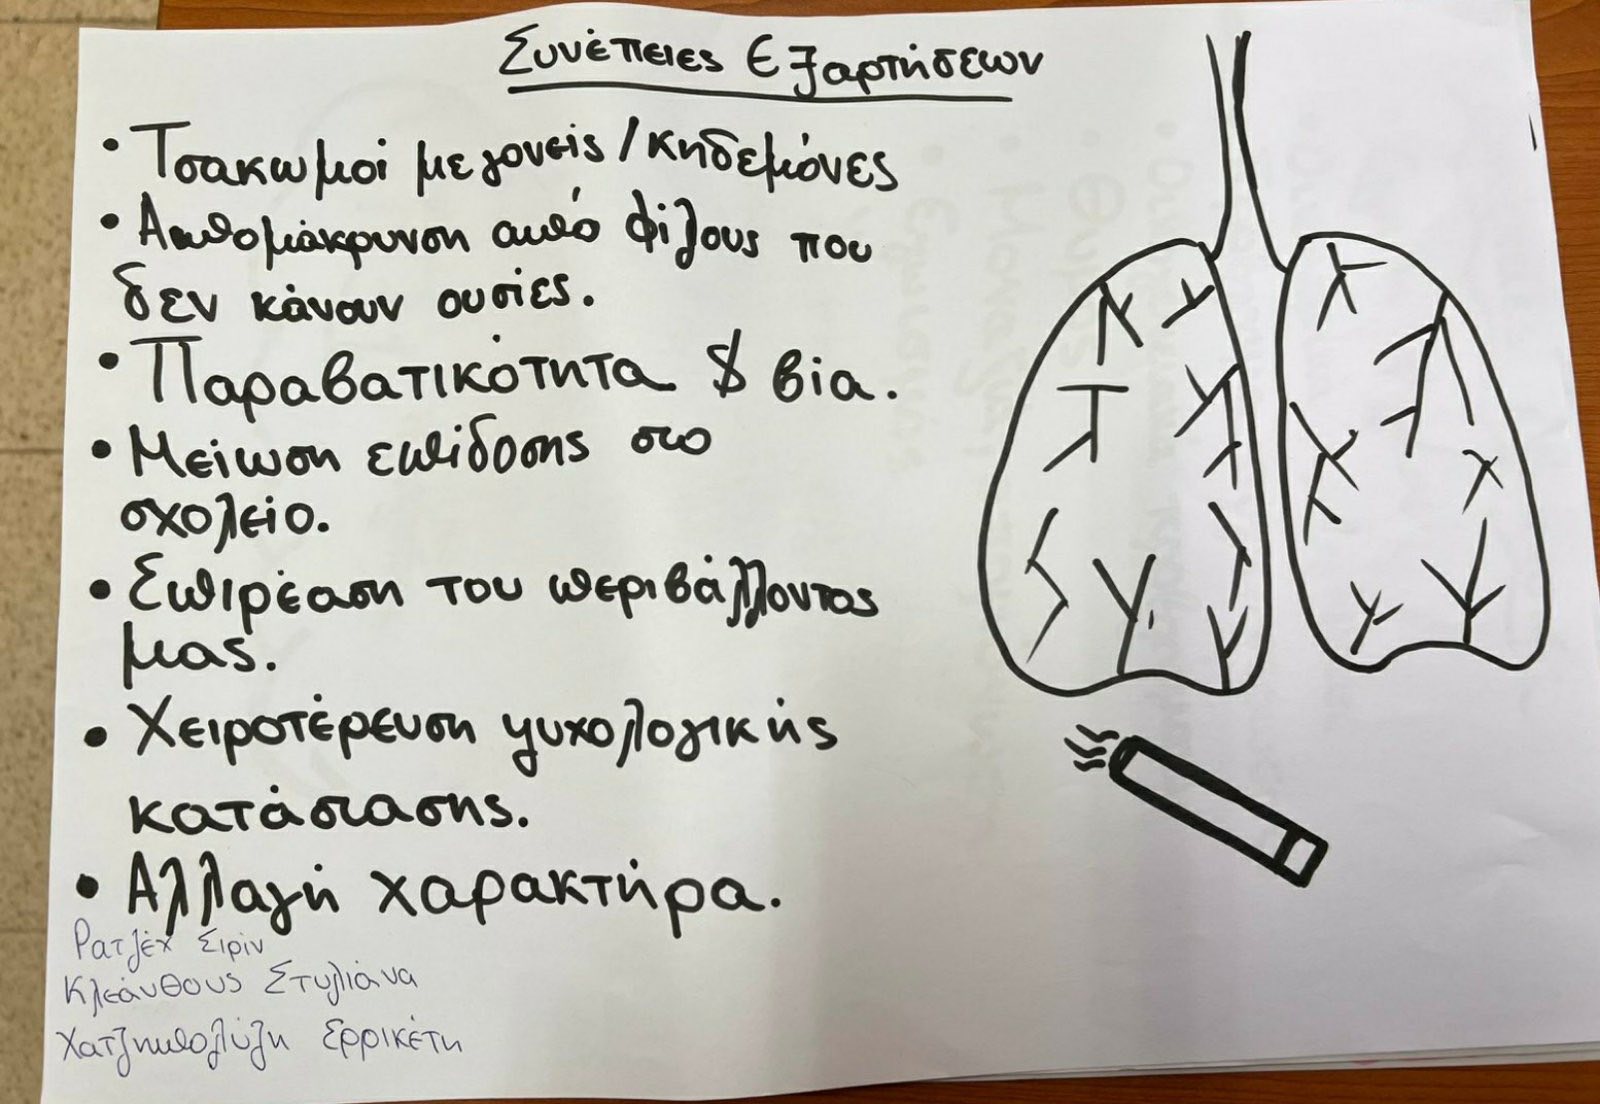 Συνέπειες Εξαρτήσεων
• Τσακωμοί με γονείς / κηδεμόνες
• Απομάκρυνση από φίλους που
δεν κάνουν ουσίες.
• Παραβατικότητα & βία.
• Μείωση επίδοσης στο
σχολείο.
• Επιρέαση του περιβάλλοντος
μας.
• Χειροτέρευση ψυχολογικής
κατάστασης.
• Αλλαγή χαρακτήρα.
Ρατζέχ Σιρίν
Κλεάνθους Στυλιάνα
Χατζηπολύζη Ερρικέτη